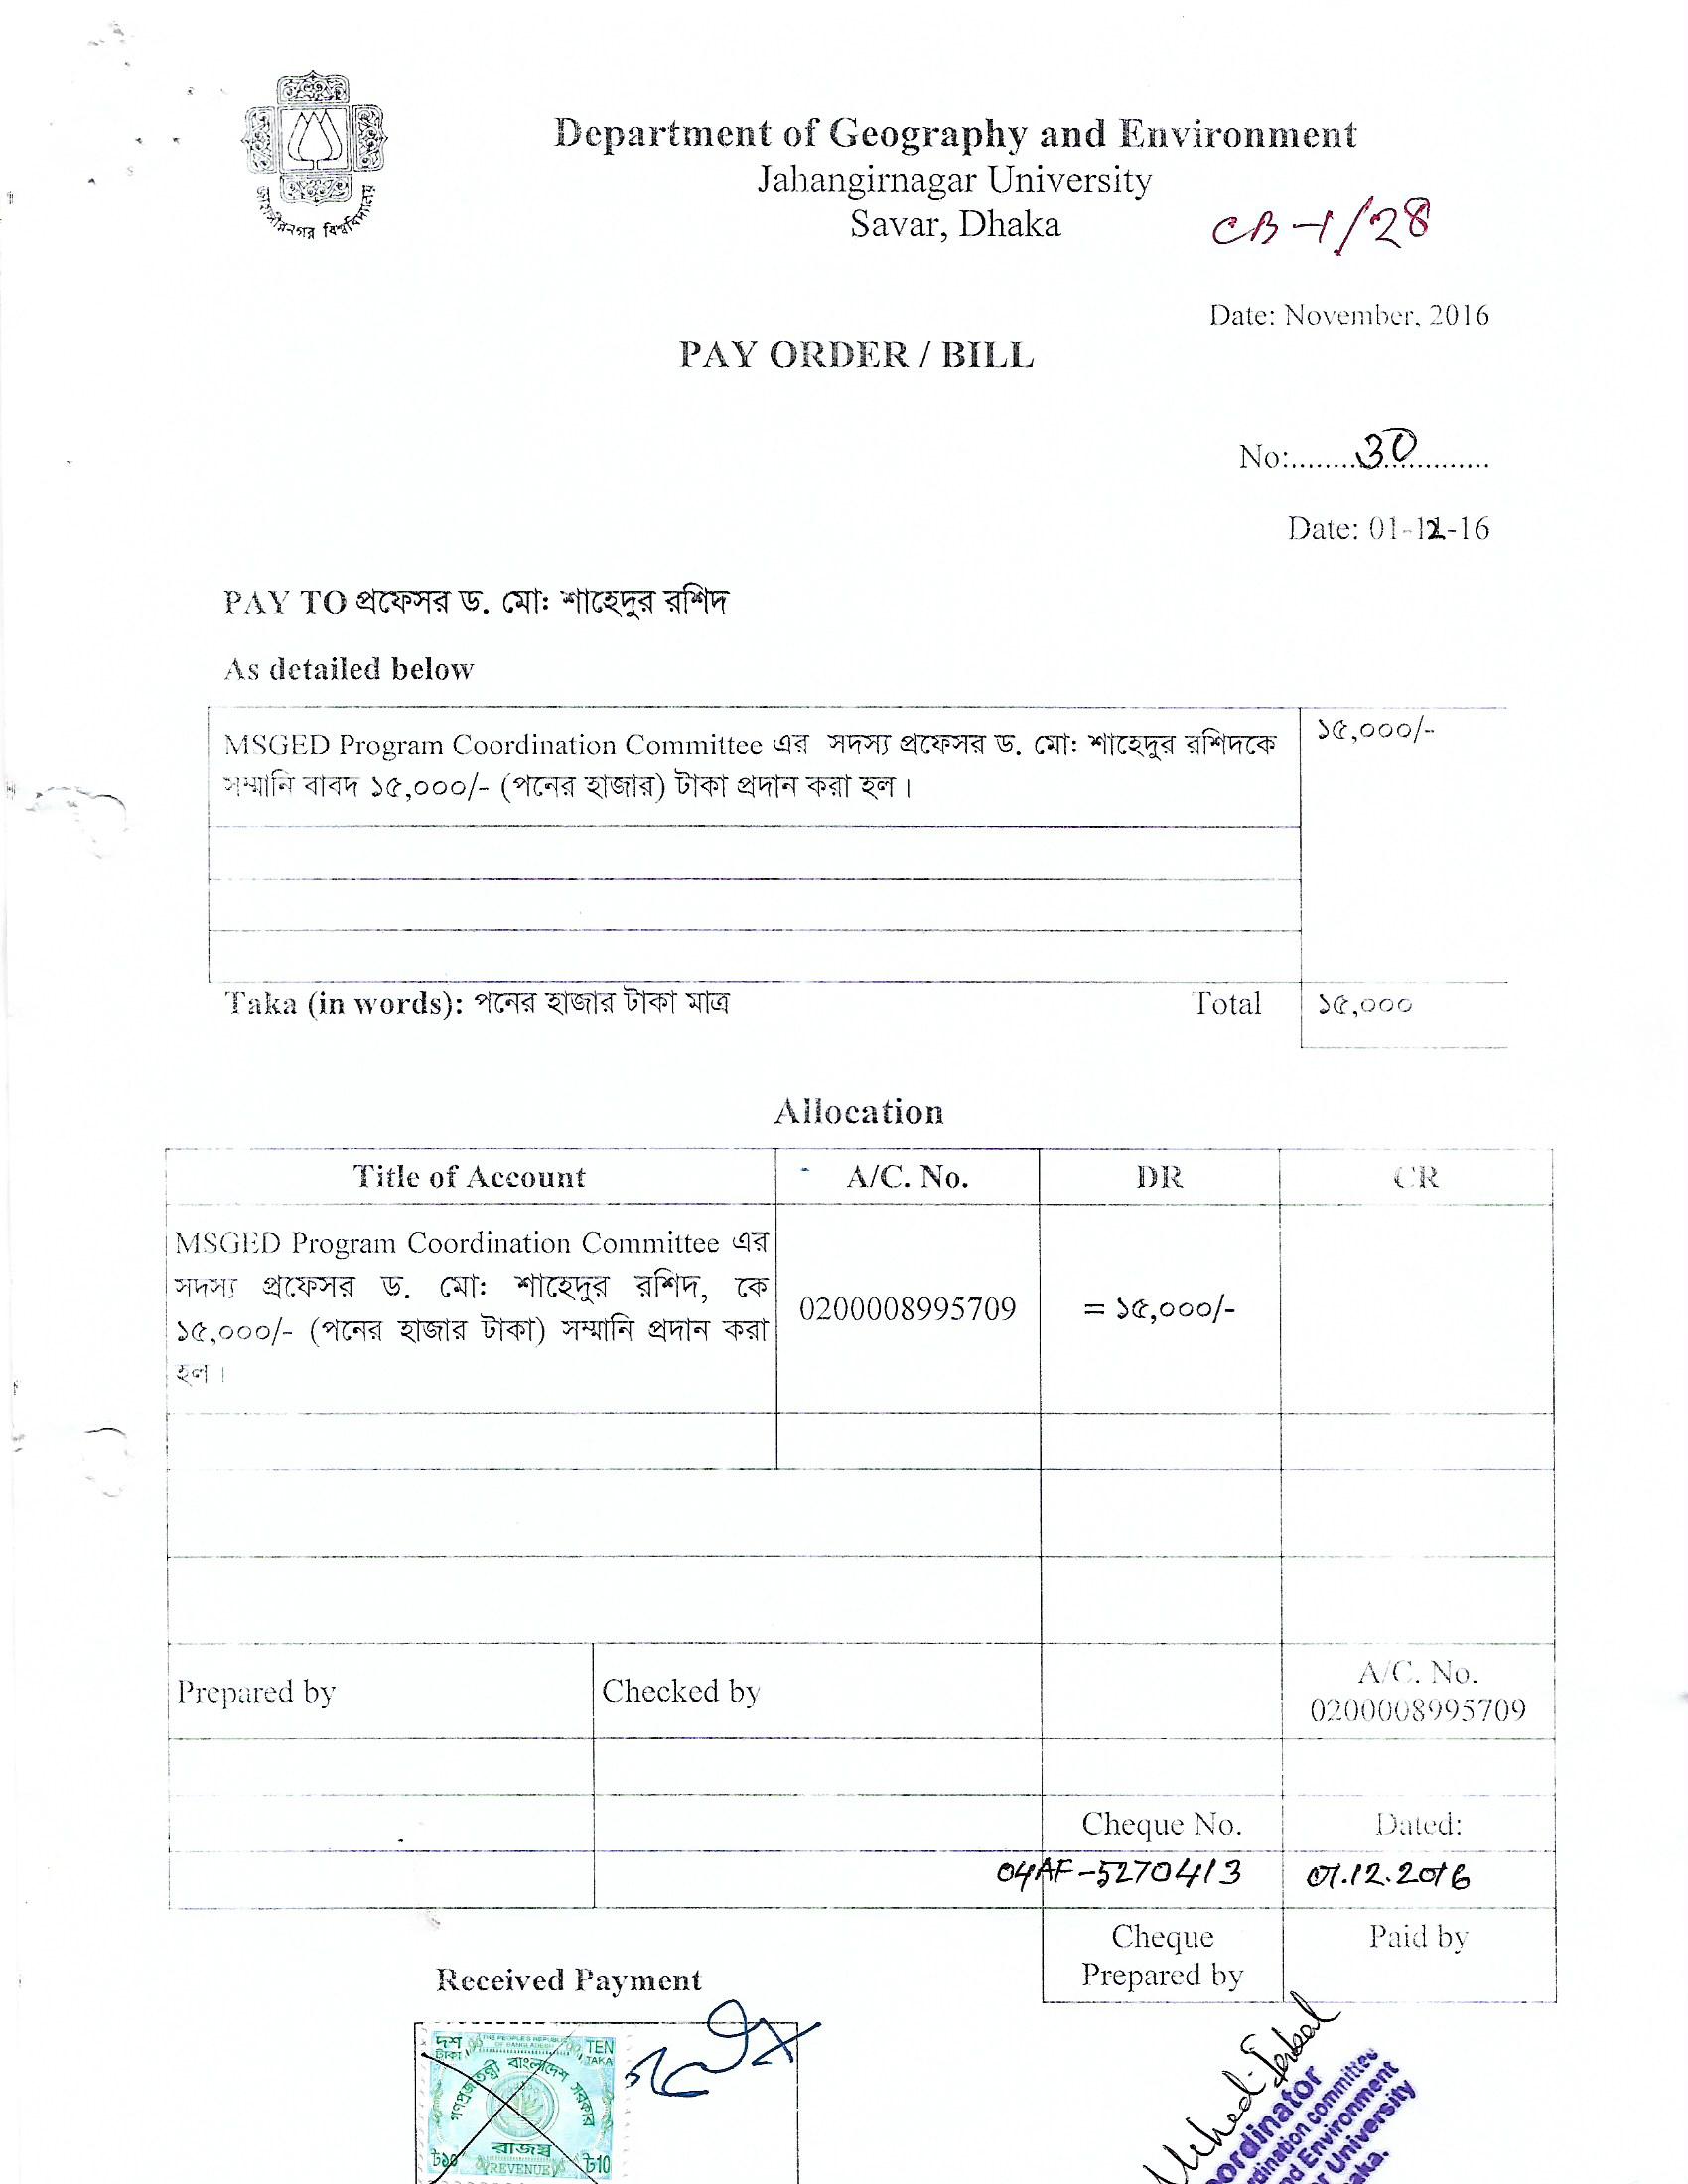 জাহাঙ্গীরনগর বিশ্ববিদ্যালয়
Department of Geography and Environment
Jahangirnagar University
Savar, Dhaka
CB-1/28
Date: November, 2016
PAY ORDER / BILL
No:........30............
Date: 01-12-16
PAY TO প্রফেসর ড. মো: শাহেদুর রশিদ
As detailed below
MSGED Program Coordination Committee এর সদস্য প্রফেসর ড. মো: শাহেদুর রশিদকে
সম্মানি বাবদ ১৫,০০০/- (পনের হাজার) টাকা প্রদান করা হল।
১৫,০০০/-
Taka (in words): পনের হাজার টাকা মাত্র
Total
১৫,০০০
Allocation
Title of Account
A/C. No.
DR
CR
MSGED Program Coordination Committee এর
সদস্য প্রফেসর ড. মো: শাহেদুর রশিদ, কে
১৫,০০০/- (পনের হাজার টাকা) সম্মানি প্রদান করা
হল।
0200008995709
= ১৫,০০০/-
Prepared by
Checked by
A/C. No.
0200008995709
Cheque No.
Dated:
04AF-5270413
01.12.2016
Cheque
Prepared by
Paid by
Received Payment
দশ
টাকা
THE PEOPLE'S REPUBLIC
OF BANGLADESH
TEN
TAKA
গণপ্রজাতন্ত্রী বাংলাদেশ সরকার
রাজস্ব
৳১০
REVENUE
৳10
ordinator
dination committee
nd Environment
r University
aka.